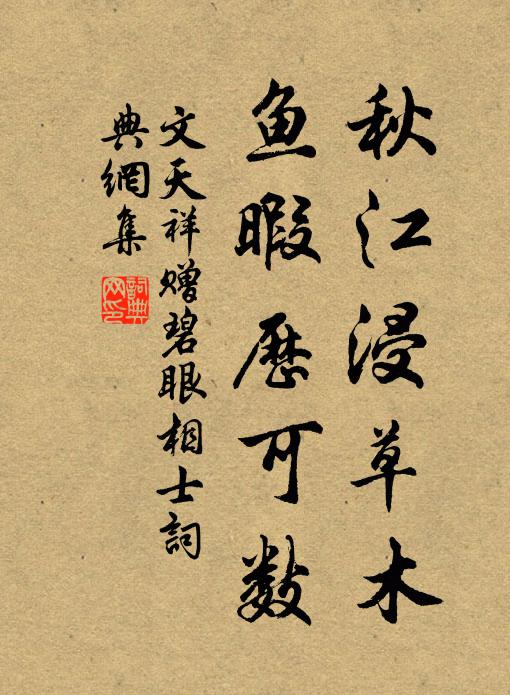 秋江浸草木
鱼暇歷可数
文天祥赠碧眼相士詞
典網集
詞典网印